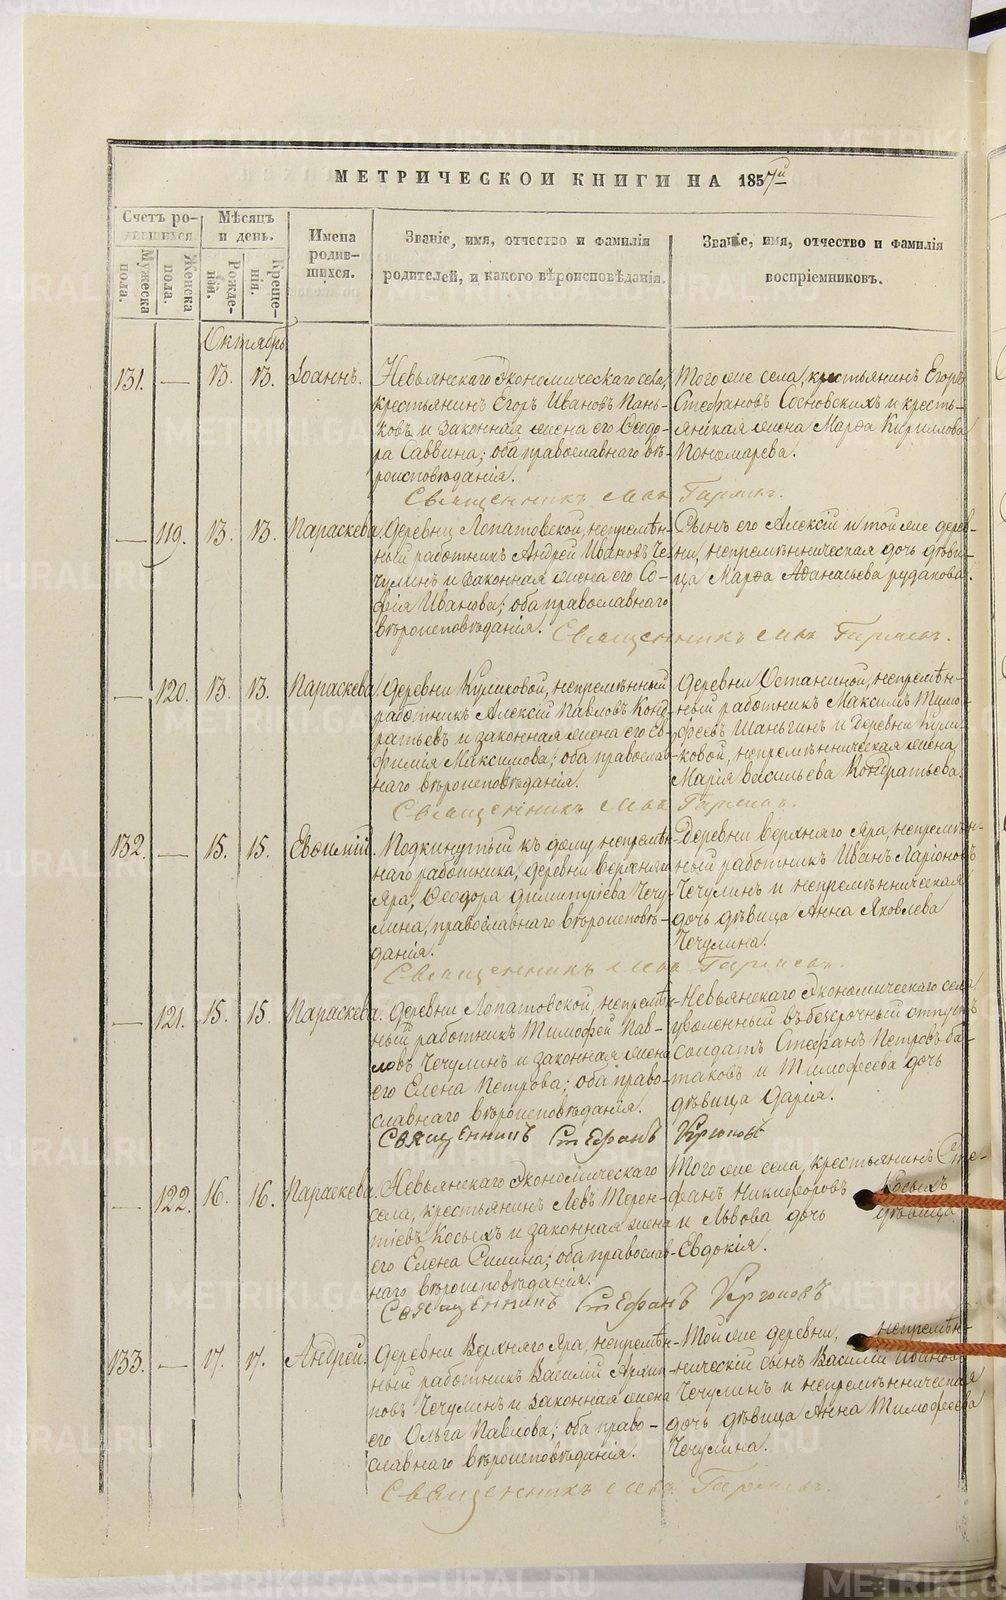 МЕТРИЧЕСКОЙ КНИГИ НА 1857й
Счетъ ро-
дившихся.
Мужеска
пола.
Женска
пола.
Мѣсяцъ
и день.
Рожде-
нія.
Креще-
нія.
Имена
родив-
шихся.
Званіе, имя, отчество и фамилія
родителей, и какого вѣроисповѣданія.
Званіе, имя, отчество и фамилія
воспріемниковъ.
Октябрь
131. — 13. 13. Іоаннъ.
Невьянскаго Экономическаго села,
крестьянинъ Егоръ Ивановъ Пань-
ковъ и законная жена его Ѳеодо-
ра Саввина; оба православнаго вѣ-
роисповѣданія.
Того же села, крестьянинъ Егоръ
Стефановъ Сосновскихъ и кресть-
янская жена Марѳа Кириллова
Пономарева.
Священникъ
— 119. 13. 13. Параскева.
Деревни Лопатовской, непремѣн-
ный работникъ Андрей Ивановъ Че-
чулинъ и законная жена его Со-
фія Иванова; оба православнаго
вѣроисповѣданія.
Сынъ его Алексій и той же дерев-
ни, непремѣнническая дочь дѣви-
ца Марѳа Аѳанасьева Рудакова.
Священникъ
— 120. 13. 13. Параскева.
Деревни Куликовой, непремѣнный
работникъ Алексій Павловъ Конд-
ратьевъ и законная жена его Ев-
фимія Максимова; оба православ-
наго вѣроисповѣданія.
Деревни Останиной, непремѣн-
ный работникъ Максимъ Тимо-
феевъ Шаньгинъ и Деревни Кули-
ковой, непремѣнническая жена
Марія Васильева Кондратьева.
Священникъ
132. — 15. 15. Евѳимій.
Подкинутый къ дому непремѣн-
наго работника, деревни Верхняго
Яра, Ѳеодора Димитріева Чечу-
лина, православнаго вѣроисповѣ-
данія.
Деревни Верхняго Яра, непремѣн-
ный работникъ Иванъ Ларіоновъ
Чечулинъ и непремѣнническая
дочь дѣвица Анна Яковлева
Чечулина.
Священникъ
— 121. 15. 15. Параскева.
Деревни Лопатовской, непремѣн-
ный работникъ Тимофей Пав-
ловъ Чечулинъ и законная жена
его Елена Петрова; оба право-
славнаго вѣроисповѣданія.
Невьянскаго Экономическаго села
уволенный въ безсрочный отпускъ
солдатъ Стефанъ Петровъ Ба-
таковъ и Тимофеева дочь
дѣвица Дарія.
Священникъ Стефанъ
— 122. 16. 16. Параскева.
Невьянскаго Экономическаго
села, крестьянинъ Левъ Терен-
тіевъ Косыхъ и законная жена
его Елена Силина; оба православ-
наго вѣроисповѣданія.
Того же села, крестьянинъ Сте-
фанъ Никифоровъ Косыхъ
и Львова дочь дѣвица
Евдокія.
Священникъ Стефанъ
133. — 17. 17. Андрей.
Деревни Верхняго Яра, непремѣн-
ный работникъ Василій Архип-
повъ Чечулинъ и законная жена
его Ольга Павлова; оба право-
славнаго вѣроисповѣданія.
Той же деревни, непремѣн-
ническій сынъ Василій Ивановъ
Чечулинъ и непремѣнническая
дочь дѣвица Анна Тимофеева
Чечулина.
Священникъ
METRIKI.GASO-URAL.RU